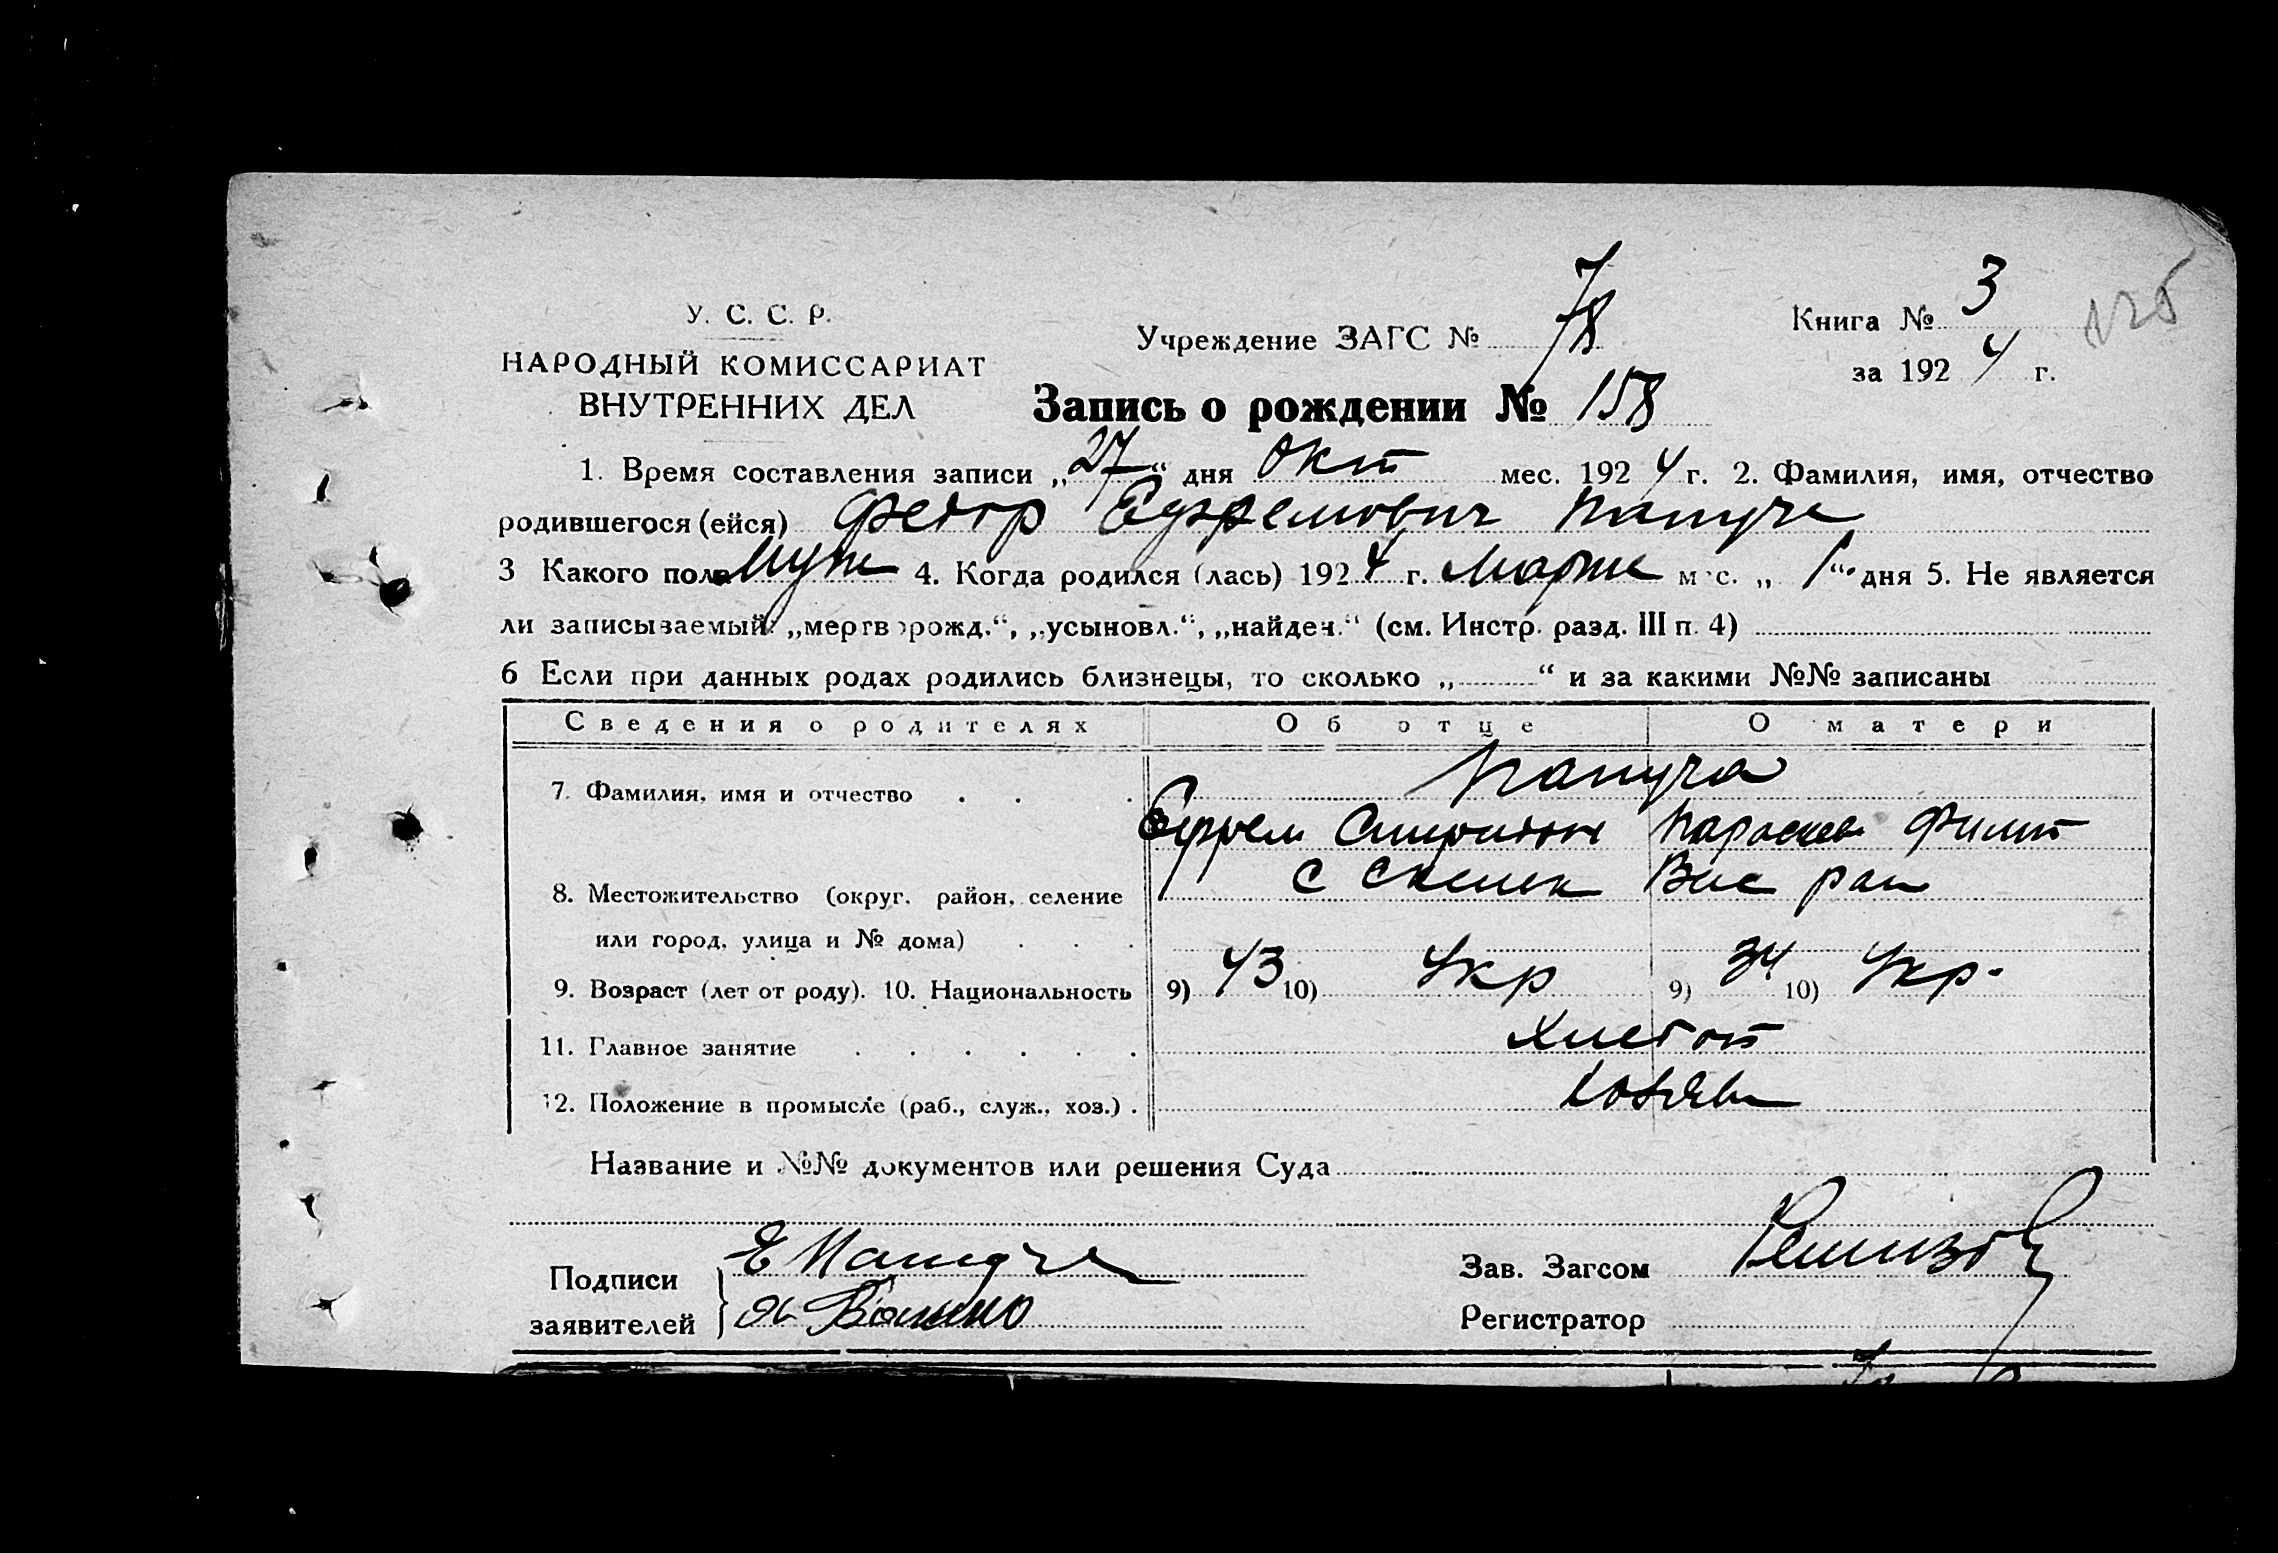 У. С. С. Р.
НАРОДНЫЙ КОМИССАРИАТ
ВНУТРЕННИХ ДЕЛ
Учреждение ЗАГС № 78
Книга № 3
за 1924 г.
Запись о рождении № 158
1. Время составления записи „27“ дня Окт мес. 1924 г. 2. Фамилия, имя, отчество
родившегося (ейся) Федор Ефремович Папуча
3 Какого пола Муж 4. Когда родился (лась) 1924 г. Марта мес. „1“ дня 5. Не является
ли записываемый: „мертворожд.“, „усыновл.“, „найден.“ (см. Инстр. разд. III п. 4)
6 Если при данных родах родились близнецы, то сколько „ “ и за какими №№ записаны
Сведения о родителях Об отце О матери
7. Фамилия, имя и отчество Папуча
Ефрем Спиридон Параскев Филип
8. Местожительство (округ, район, селение с Скельк Вас рай
или город, улица и № дома)
9. Возраст (лет от роду). 10. Национальность 9) 43 10) Укр 9) 34 10) Укр.
11. Главное занятие Хлебоп
12. Положение в промысле (раб., служ., хоз.) Хозяев
Название и №№ документов или решения Суда
Подписи Е Папуча
заявителей
Зав. Загсом
Регистратор